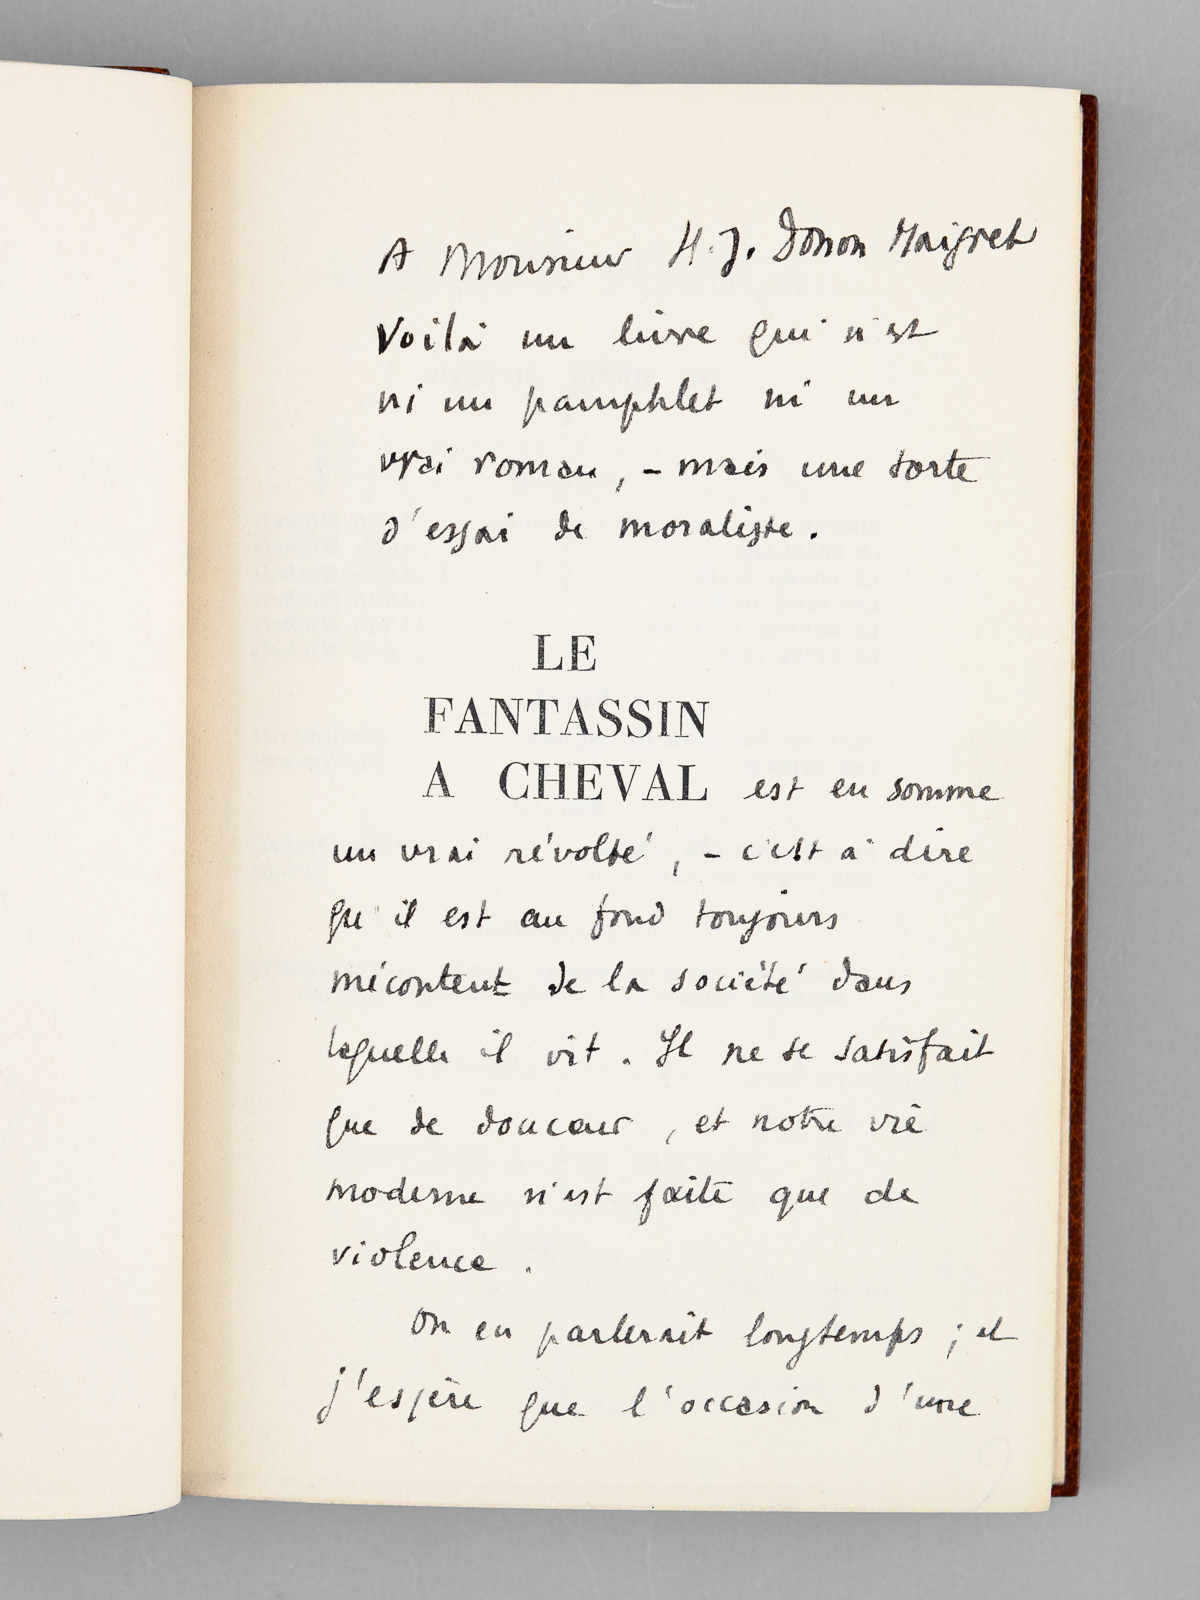 A Monsieur H. J. Donon Maigret
Voilà un livre qui n'est
ni un pamphlet ni un
vrai roman, - mais une sorte
d'essai de moraliste.
LE
FANTASSIN
A CHEVAL est en somme
un vrai révolté, - c'est à dire
qu'il est au fond toujours
mécontent de la société dans
laquelle il vit. Il ne se satisfait
que de douceur, et notre vie
moderne n'est faite que de
violence.
On en parlerait longtemps ; et
j'espère que l'occasion d'une